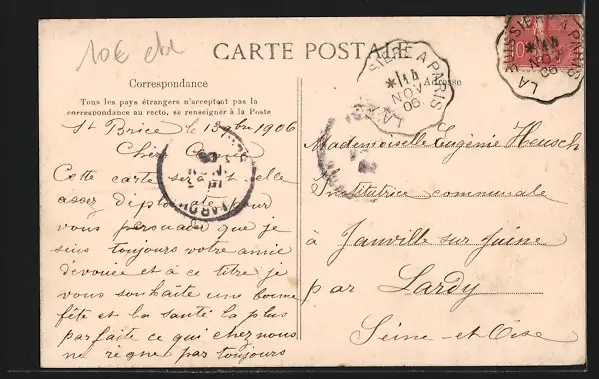 10€
CARTE POSTALE
Correspondance
Adresse
Tous les pays étrangers n'acceptent pas la
correspondance au recto, se renseigner à la Poste
St Brice le 13 9bre 1906
Chère
Cette carte sera-t-elle
assez diplomate pour
vous persuader que je
suis toujours votre amie
dévouée et à ce titre je
vous souhaite une bonne
fête et la santé la plus
parfaite ce qui chez nous
ne règne pas toujours
Mademoiselle Eugénie Heusch
Institutrice communale
à Janville sur Juine
par Lardy
Seine-et-Oise
SIERE A PARIS
14
NOV
06
LA
LA
SIERE A PARIS
14
NOV
06
LARDY